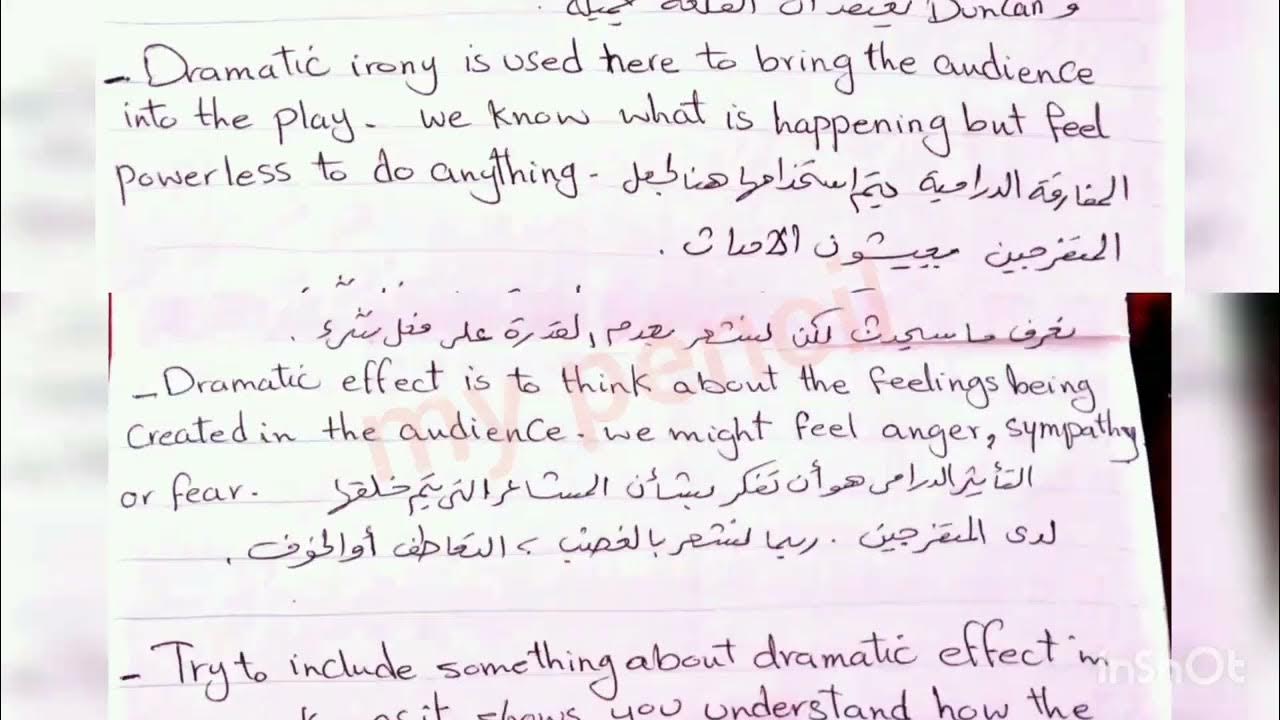 و Duncan
- Dramatic irony is used here to bring the audience
into the play. we know what is happening but feel
powerless to do anything. المفارقة الدرامية يتم استخدامها هنا لجعل
المتفرجين يعيشون الاحداث .
نعرف ما سيحدث لكن نشعر بعدم القدرة على فعل شيء .
- Dramatic effect is to think about the feelings being
created in the audience. we might feel anger, sympathy
or fear. التأثير الدرامى هو أن تفكر بشأن المشاعر التى يتم خلقها
لدى المتفرجين . ربما نشعر بالغضب ، التعاطف أو الخوف .
- Try to include something about dramatic effect in
as it shows you understand how the
my pencil
InShOt